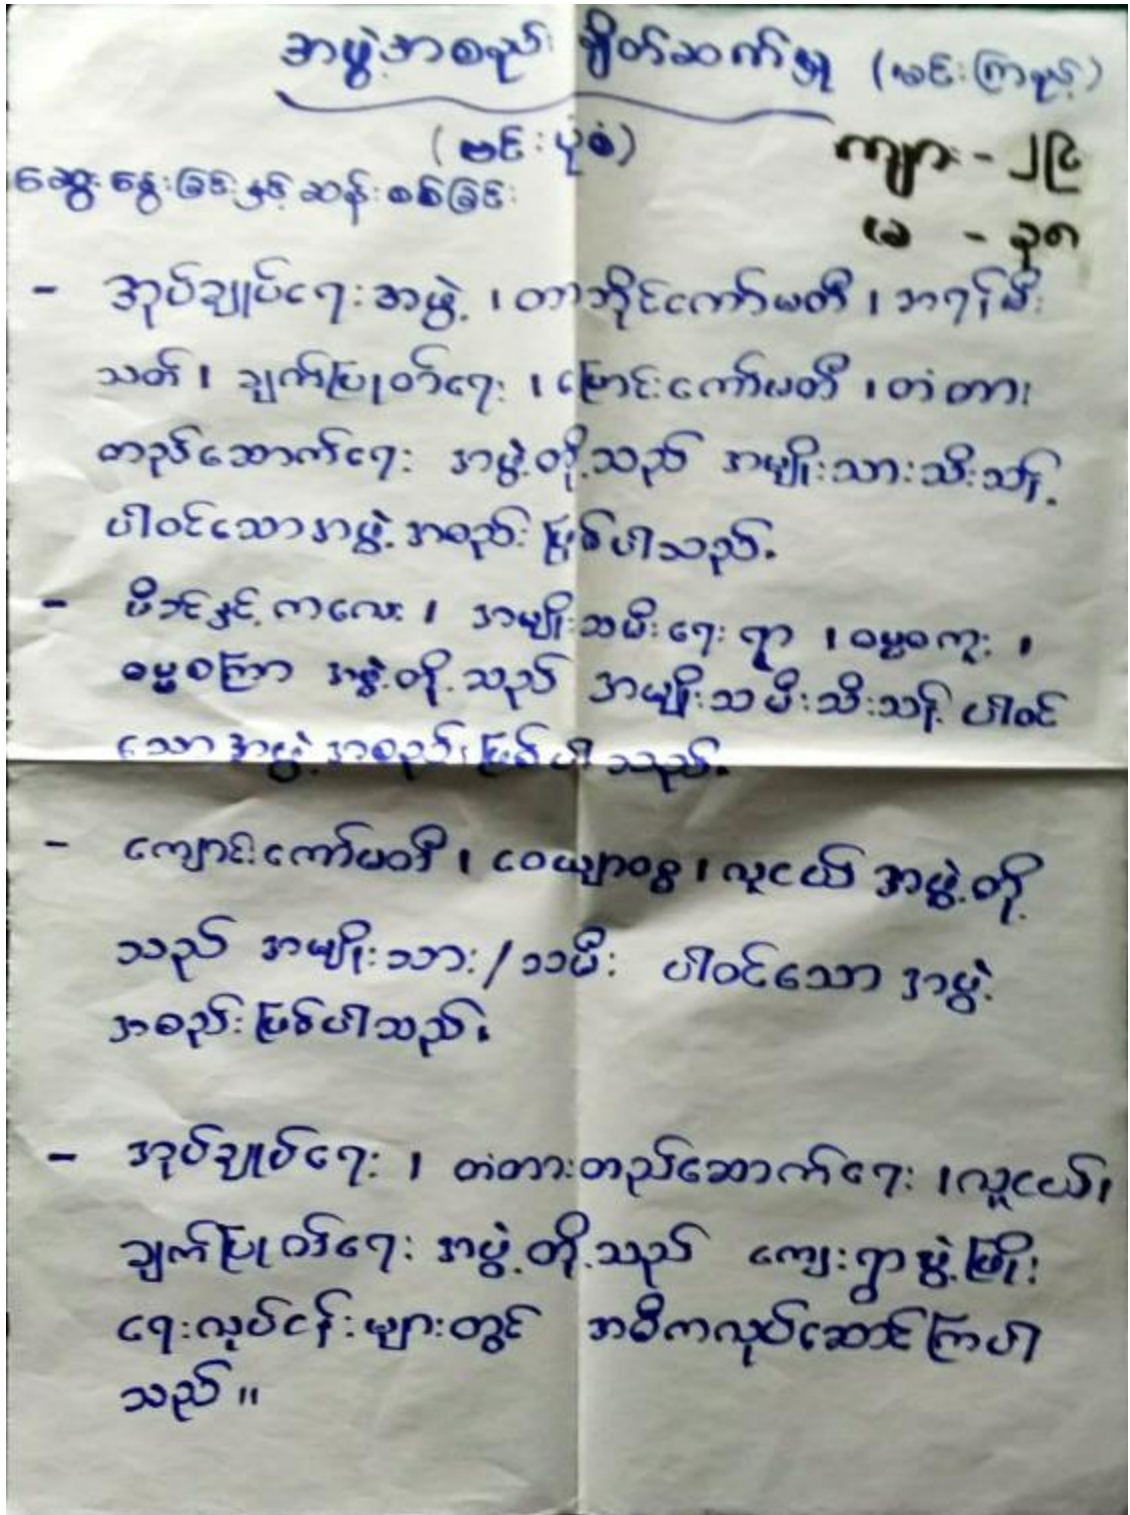 အဖွဲ့အစည်း ချိတ်ဆက်မှု (မင်းကြာရည်)
(ဗင်းပုံစံ)
ကျား - ၂၉
မ - ၃၈
ဆွေးနွေးခြင်းနှင့်ဆန်းစစ်ခြင်း
- အုပ်ချုပ်ရေးအဖွဲ့ ၊ တာတိုင်ကော်မတီ ၊ အရန်မီး
သတ် ၊ ချက်ပြုတ်ရေး ၊ မြောင်းကော်မတီ ၊ တံတား
တည်ဆောက်ရေး အဖွဲ့တို့သည် အမျိုးသားသီးသန့်
ပါဝင်သောအဖွဲ့အစည်း ဖြစ်ပါသည်.
- မိခင်နှင့်ကလေး ၊ အမျိုးသမီးရေးရာ ၊ ဓမ္မစကူး ၊
ဓမ္မစကြာ အဖွဲ့တို့သည် အမျိုးသမီးသီးသန့် ပါဝင်
သောအဖွဲ့အစည်းဖြစ်ပါသည်.
- ကျောင်းကော်မတီ ၊ ဝေယျာဝစ္စ ၊ လူငယ် အဖွဲ့တို့
သည် အမျိုးသား/သမီး ပါဝင်သော အဖွဲ့
အစည်းဖြစ်ပါသည်.
- အုပ်ချုပ်ရေး ၊ တံတားတည်ဆောက်ရေး ၊ လူငယ် ၊
ချက်ပြုတ်ရေး အဖွဲ့တို့သည် ကျေးရွာဖွံ့ဖြိုး
ရေးလုပ်ငန်းများတွင် အဓိကလုပ်ဆောင်ကြပါ
သည် ။